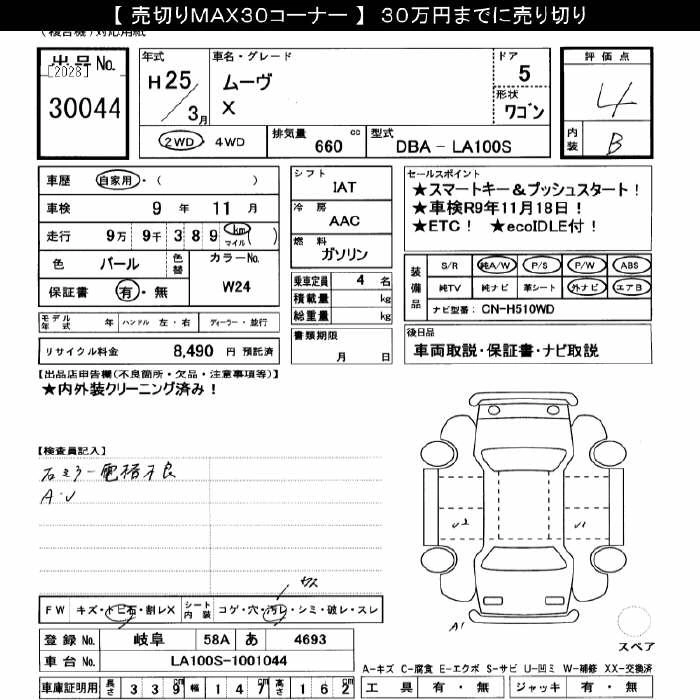 【 売切りMAX30コーナー 】 30万円までに売り切り
(複合機)対応用紙
出品No.
[2028]
30044
年式
H25/3月
車名・グレード
ムーヴ
X
ドア
5
形状
ワゴン
評価点
4
内装
B
2WD・4WD
排気量 660 cc
型式 DBA - LA100S
車歴 自家用・( )
車検 9 年 11 月
走行 9万 9千 3 8 9 km マイル ( )
色 パール 色替 カラーNo. W24
保証書 有・無
モデル年式 年 ハンドル 左・右 ディーラー・並行
リサイクル料金 8,490 円 預託済
シフト
IAT
冷房
AAC
燃料
ガソリン
乗車定員 4 名
積載量 kg
総重量 kg
書類期限
月 日
セールスポイント
★スマートキー&プッシュスタート!
★車検R9年11月18日!
★ETC! ★ecoIDLE付!
装備品
S/R 純A/W P/S P/W ABS
純TV 純ナビ 革シート 外ナビ エアB
ナビ型番: CN-H510WD
後日品
車両取説・保証書・ナビ取説
【出品店申告欄(不良箇所・欠品・注意事項等)】
★内外装クリーニング済み!
【検査員記入】
右ミラー電格不良
A・U
U2
U1
A1
切レ
FW キズ・トビ石・割レX シート内装 コゲ・穴・汚レ・シミ・破レ・スレ
登録No. 岐阜 58A あ 4693
車台No. LA100S-1001044
車庫証明用 長さ 3 3 9 cm 幅 1 4 7 cm 高さ 1 6 2 cm
スペア
A-キズ C-腐食 E-エクボ S-サビ U-凹ミ W-補修 XX-交換済
工具 有・無 ジャッキ 有・無